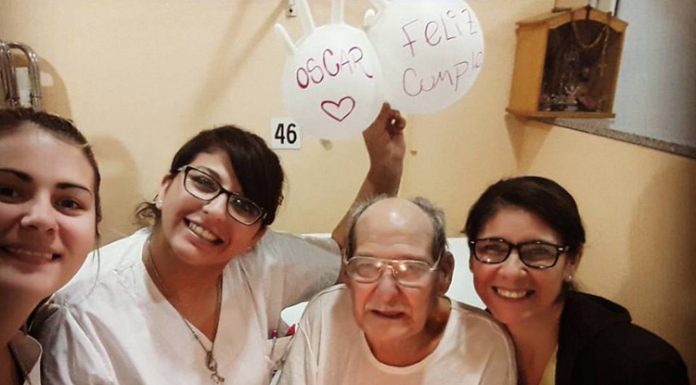 OSCAR
FELIZ
Cumple
46